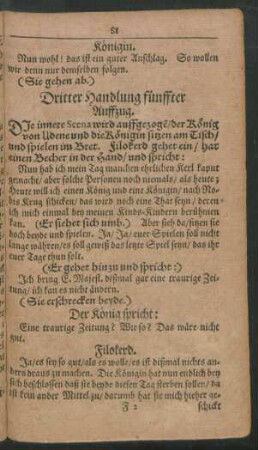 81
Königin.
Nun wohl! das ist ein guter Anschlag. So wollen
wir denn nur demselben folgen.
(Sie gehen ab.)
Dritter Handlung fünffter
Auffzug.
DIe innere Scena wird auffgezogẽ/ der König
von Udene und die Königin sitzen am Tisch/
und spielen im Bret. Filokerd gehet ein/ hat
einen Becher in der Hand/ und spricht:
Nun hab ich mein Tag manchen ehrlichen Kerl kaput
gemacht/ aber solche Personen noch niemals/ als heute;
Heute will ich einen König und eine Königin/ nach No-
bis Krug schicken/ das wird noch eine That seyn/ deren-
ich mich einmal bey meinen Kinds-Kindern berühmen
kan. (Er siehet sich umb.) Aber sieh da/ sitzen sie
doch beyde und spielen. Ja/ Ja/ euer Spielen soll nicht
lange währen/ es soll gewiß das letzte Spiel seyn/ das ihr
euer Tage thun solt.
(Er gehet hinzu und spricht:)
Ich bring E. Majest. dißmal gar eine traurige Zei-
tung/ ich kan es nicht ändern.
(Sie erschrecken beyde.)
Der König spricht:
Eine traurige Zeitung? Wie so? Das wäre nicht
gut.
Filokerd.
Ja/ es sey so gut/ als es wolle/ es ist dißmal nichts an-
ders daraus zu machen. Die Königin hat nun endlich bey
sich beschlossen daß sie beyde diesen Tag sterben sollen/ da
ist kein ander Mittel zu/ darumb hat sie mich hieher ge-
F 2 schickt